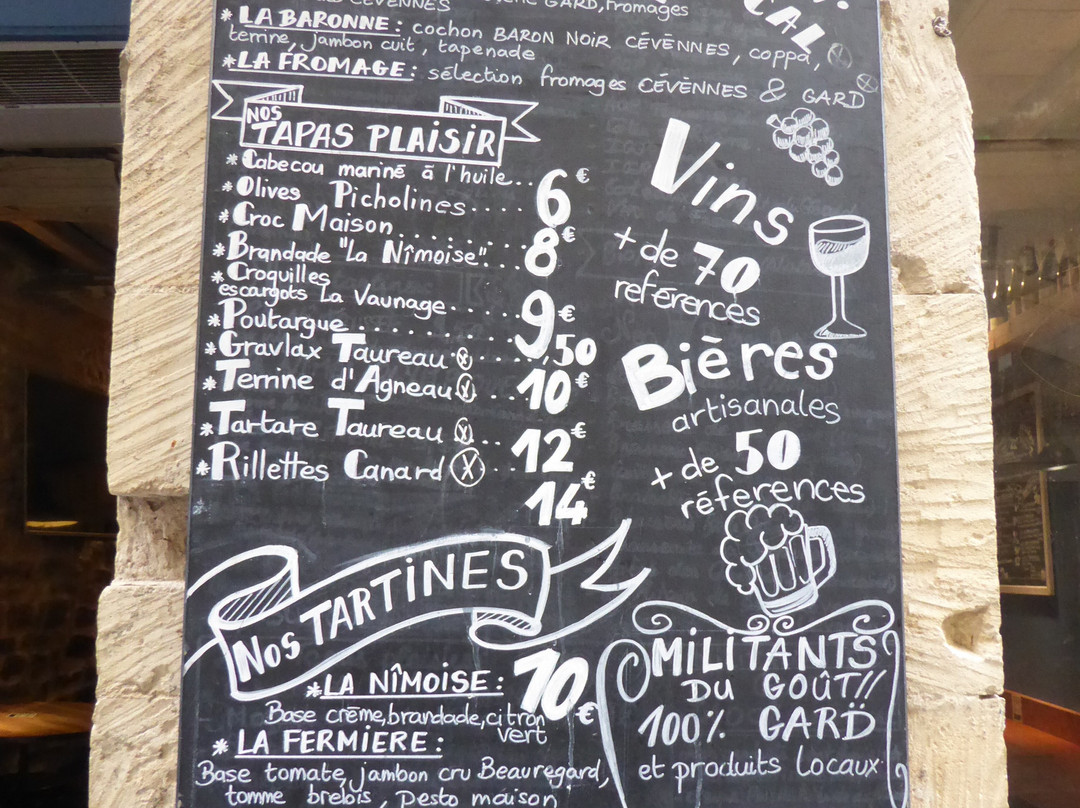 CÉVENNES
GARD, fromages
CAL
* LA BARONNE : cochon BARON NOIR CÉVÈNNES, coppa,
terrine, jambon cuit, tapenade
* LA FROMAGE : sélection fromages CÉVÈNNES & GARD
NOS
TAPAS PLAISIR
* Cabecou mariné à l'huile..
* Olives Picholines.... 6€
* Croc Maison........
* Brandade "La Nîmoise"... 8€
* Croquilles
escargots La Vaunage.....
* Poutargue.......... 9€
* Gravlax Taureau ⓧ....,50
* Terrine d'Agneau ⓧ.. 10€
* Tartare Taureau ⓧ.. 12€
* Rillettes Canard ⓧ..
14€
Vins
+ de 70
references
Bières
artisanales
+ de 50
réferences
Nos TARTINES
* LA NÎMOISE : 10€
Base crême, brandade, citron
vert
* LA FERMIERE :
Base tomate, jambon cru Beauregard,
tomme brebis, pesto maison
MILITANTS
DU GOÛT!!
100% GARD
et produits Locaux